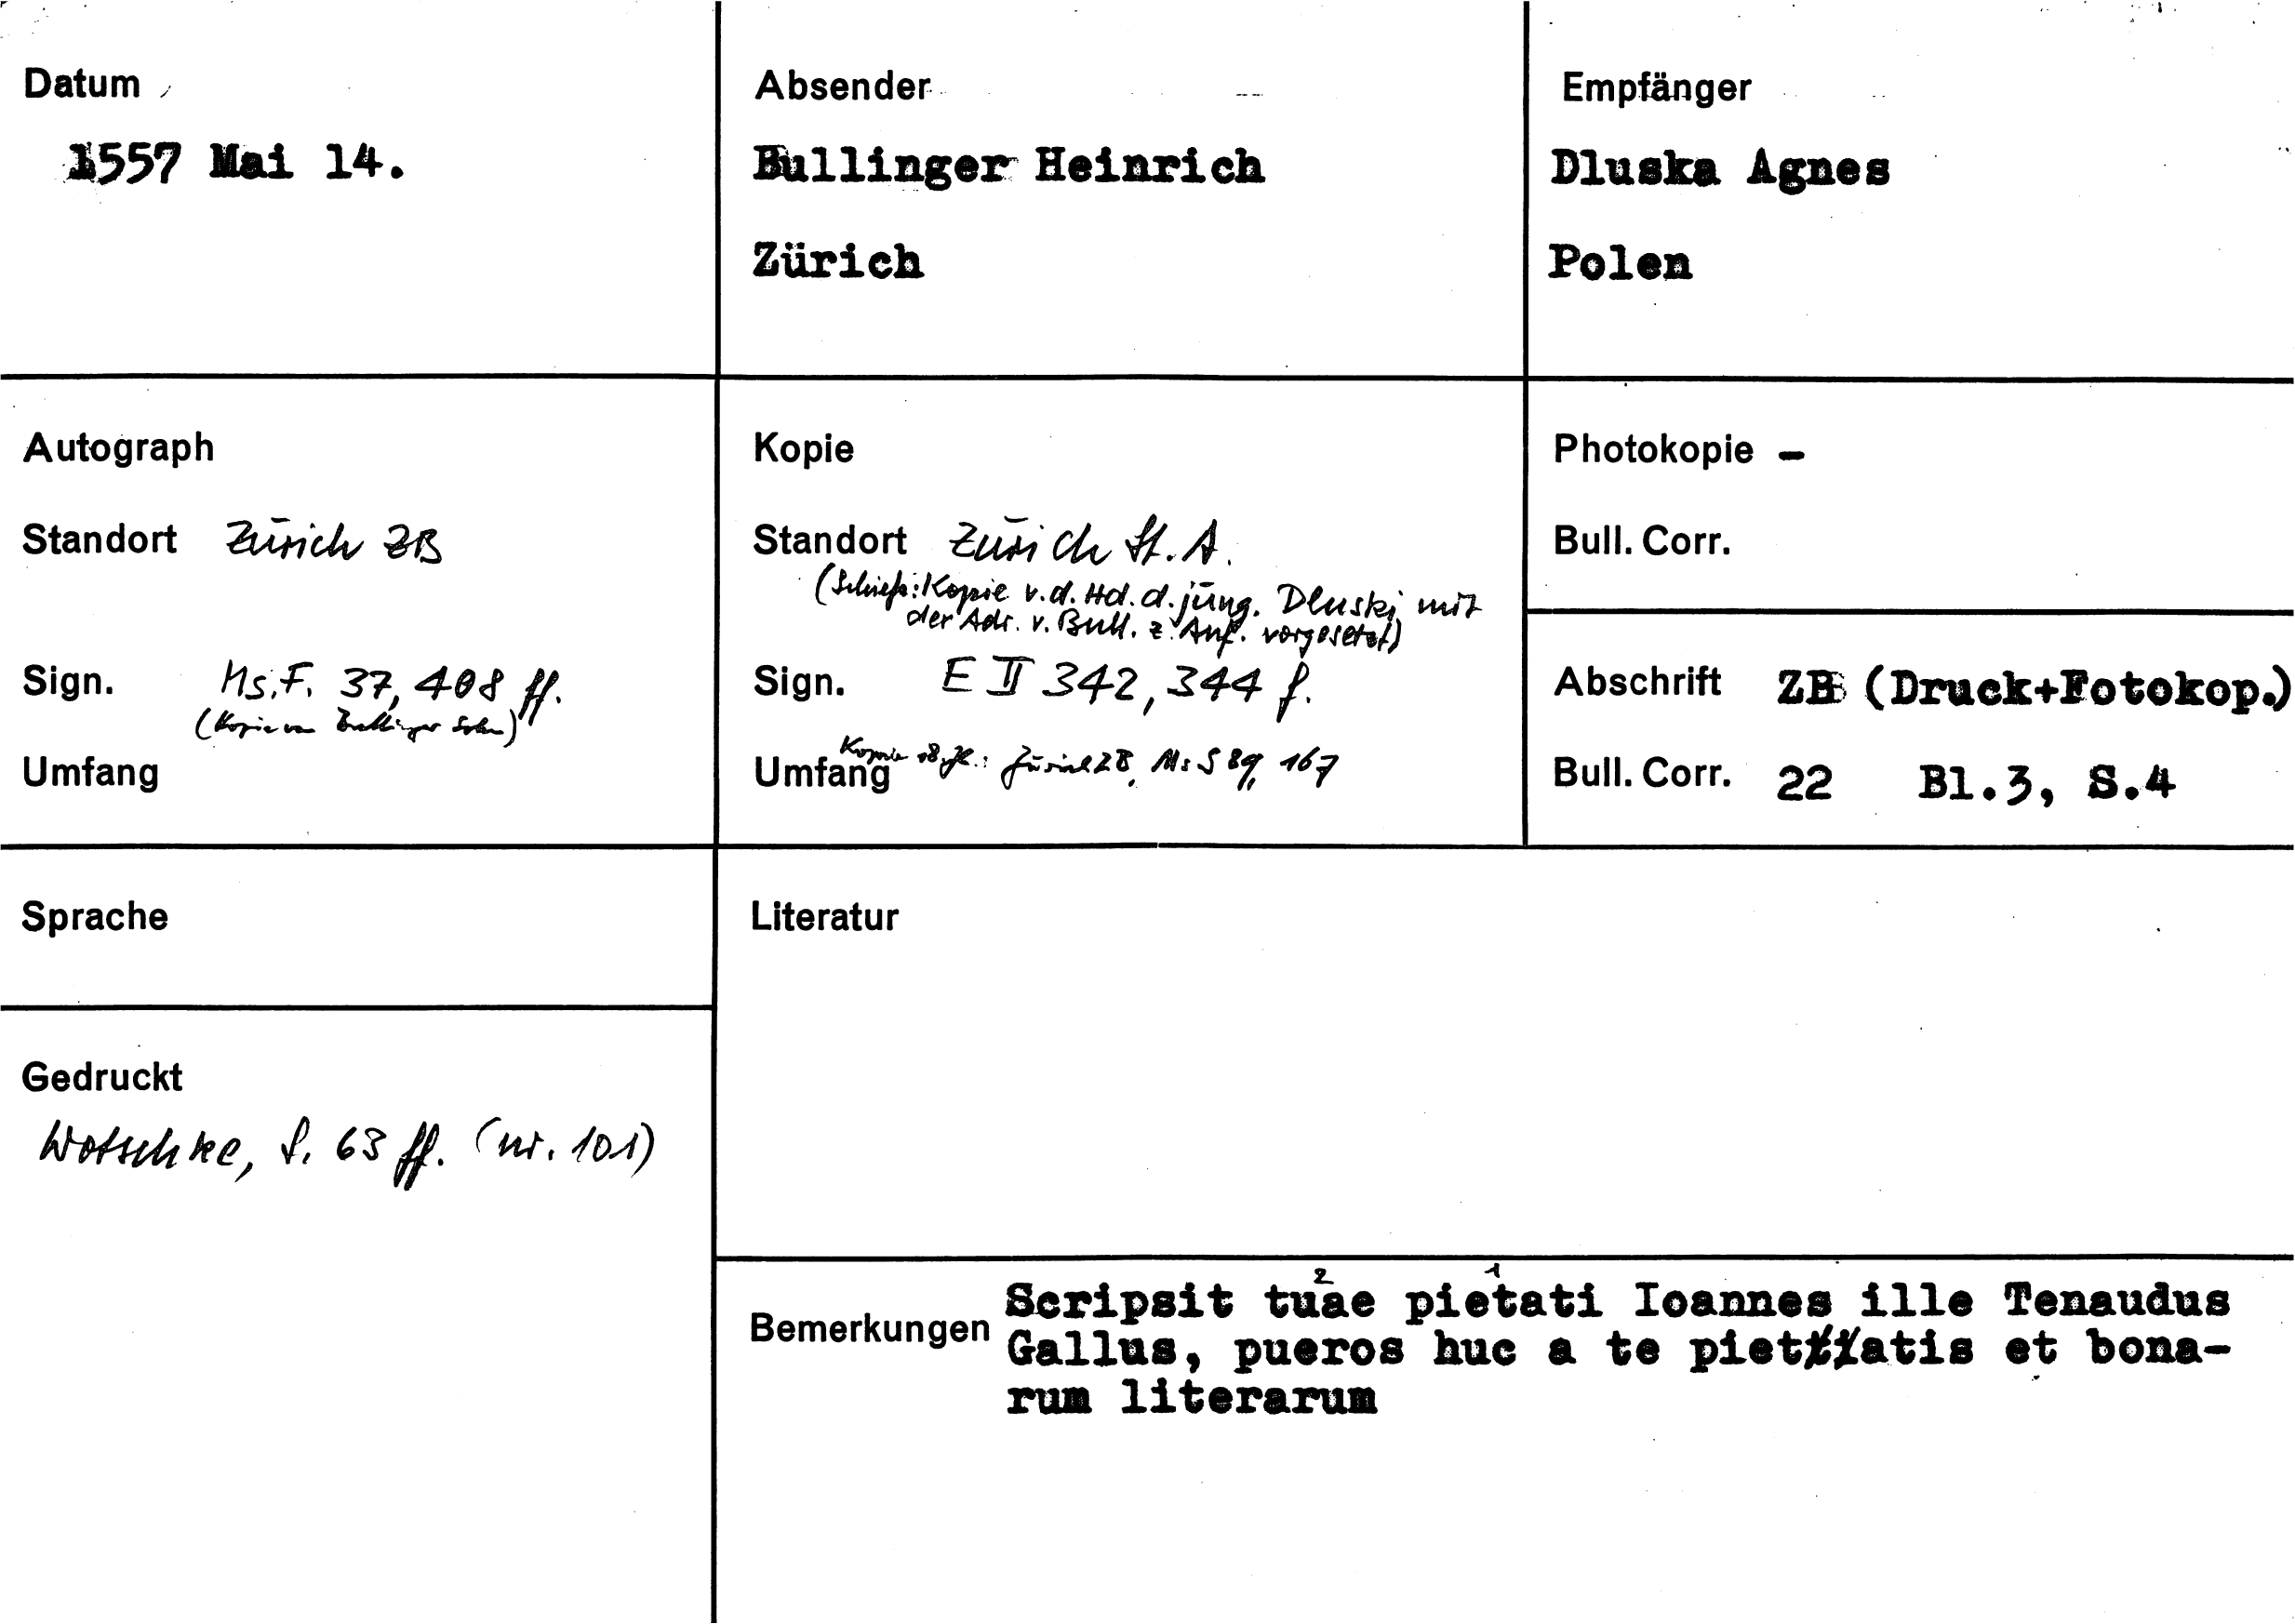 Datum
1557 Mai 14.
Absender
Bullinger Heinrich
Zürich
Empfänger
Dluska Agnes
Polen
Autograph
Standort Zürich ZB
Sign. Ms. F. 37, 408 ff.
(Kopie von Bullinger Sohn)
Umfang
Kopie
Standort Zürich St. A.
(Schieß: Kopie v. d. Hd. d. jüng. Dluski mit
der Adr. v. Bull. z. Anf. vorgesetzt)
Sign. E II 342, 344 f.
Kopie 18. Jh.: Zürich ZB, Ms S 89, 167
Umfang
Photokopie -
Bull. Corr.
Abschrift ZB (Druck+Fotokop.)
Bull. Corr. 22 Bl.3, S.4
Sprache
Gedruckt
Wotschke, S. 63 ff. (nr. 101)
Literatur
Bemerkungen
2 1
Scripsit tuae pietati Ioannes ille Tenaudus
Gallus, pueros huc a te pietatis et bona-
rum literarum